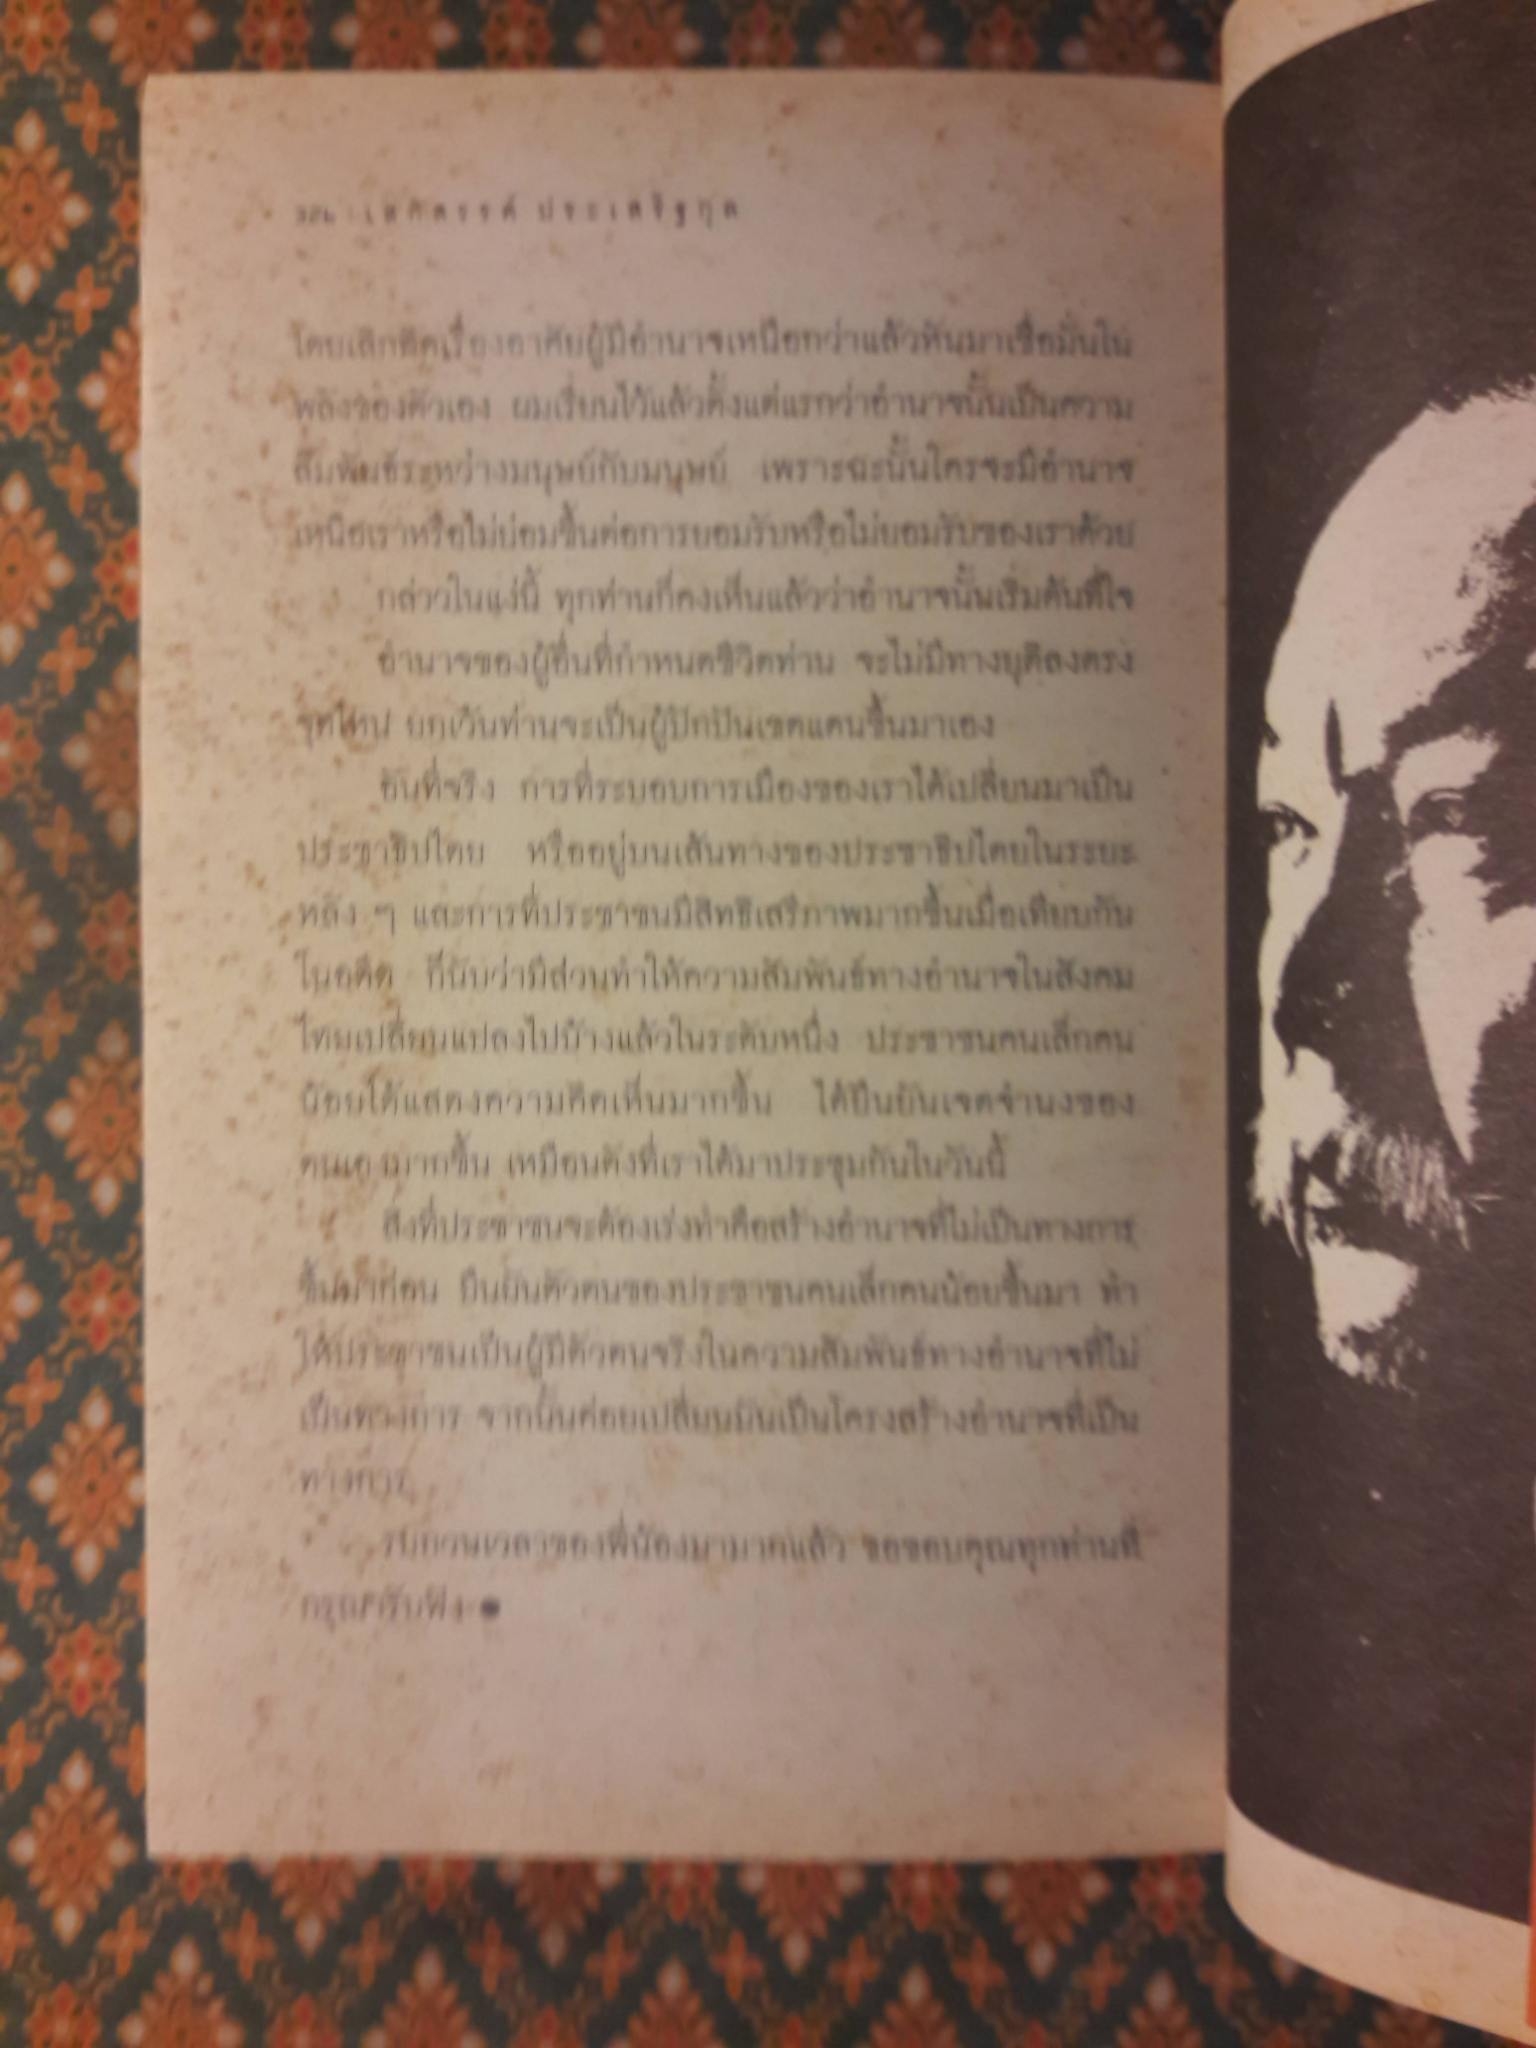 เสกสรรค์ ประเสริฐกุล
โดยเลิกคิดเรื่องอาศัยผู้มีอำนาจเหนือกว่าแล้วหันมาเชื่อมั่นใน
พลังของตัวเอง ผมเรียนไว้แล้วตั้งแต่แรกว่าอำนาจนั้นเป็นความ
สัมพันธ์ระหว่างมนุษย์กับมนุษย์ เพราะฉะนั้นใครจะมีอำนาจ
เหนือเราหรือไม่ย่อมขึ้นต่อการยอมรับหรือไม่ยอมรับของเราด้วย
กล่าวในแง่นี้ ทุกท่านก็คงเห็นแล้วว่าอำนาจนั้นเริ่มต้นที่ใจ
อำนาจของผู้อื่นที่กำหนดชีวิตท่าน จะไม่มีทางยุติลงตรง
จุดไหน ยกเว้นท่านจะเป็นผู้ปักปันเขตแดนขึ้นมาเอง
อันที่จริง การที่ระบอบการเมืองของเราได้เปลี่ยนมาเป็น
ประชาธิปไตย หรืออยู่บนเส้นทางของประชาธิปไตยในระยะ
หลัง ๆ และการที่ประชาชนมีสิทธิเสรีภาพมากขึ้นเมื่อเทียบกับ
ในอดีต ก็นับว่ามีส่วนทำให้ความสัมพันธ์ทางอำนาจในสังคม
ไทยเปลี่ยนแปลงไปบ้างแล้วในระดับหนึ่ง ประชาชนคนเล็กคน
น้อยได้แสดงความคิดเห็นมากขึ้น ได้ยืนยันเจตจำนงของ
ตนเองมากขึ้น เหมือนดังที่เราได้มาประชุมกันในวันนี้
สิ่งที่ประชาชนจะต้องเร่งทำคือสร้างอำนาจที่ไม่เป็นทางการ
ขึ้นมาก่อน ยืนยันตัวตนของประชาชนคนเล็กคนน้อยขึ้นมา ทำ
ให้ประชาชนเป็นผู้มีตัวตนจริงในความสัมพันธ์ทางอำนาจที่ไม่
เป็นทางการ จากนั้นค่อยเปลี่ยนมันเป็นโครงสร้างอำนาจที่เป็น
ทางการ
รบกวนเวลาของพี่น้องมามากแล้ว ขอขอบคุณทุกท่านที่
กรุณารับฟัง